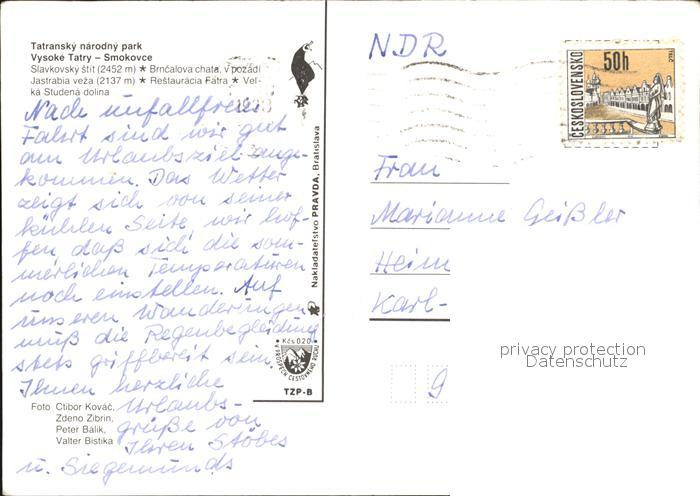 Tatranský národný park
Vysoké Tatry – Smokovce
Slavkovský štít (2452 m) ★ Brnčalova chata, v pozadí
Jastrabia veža (2137 m) ★ Reštaurácia Fatra ★ Veľ-
ká Studená dolina
Nach unfallfreier
Fahrt sind wir gut
am Urlaubsziel ange-
kommen. Das Wetter
zeigt sich von seiner
kühlen Seite, wir hof-
fen, daß sich die som-
merlichen Temperaturen
noch einstellen. Auf
unseren Wanderungen
muß die Regenbegleidung
stets griffbereit sein.
Ihnen herzliche
Urlaubs-
grüße von
Ihren Stöbes
u. Siegemunds
Foto: Ctibor Kováč,
Zdeno Zibrín,
Peter Bálik,
Valter Bistika
Nakladateľstvo PRAVDA, Bratislava
Kčs 0,20
VÝROBOK CESTOVNÉHO RUCHU
TZP-B
NDR
ČESKOSLOVENSKO
50h
TELČ
Frau
Marianne Geißler
Heim
Karl-
9
privacy protection
Datenschutz